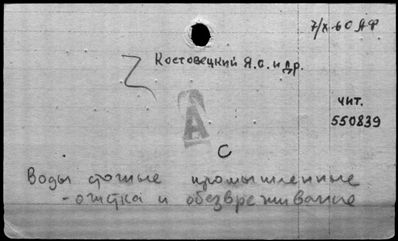 7/X-60 АФ
Костовецкий Я.О. и др.
чит.
550839
А
С
Воды сточные промышленные
- очистка и обезвреживание